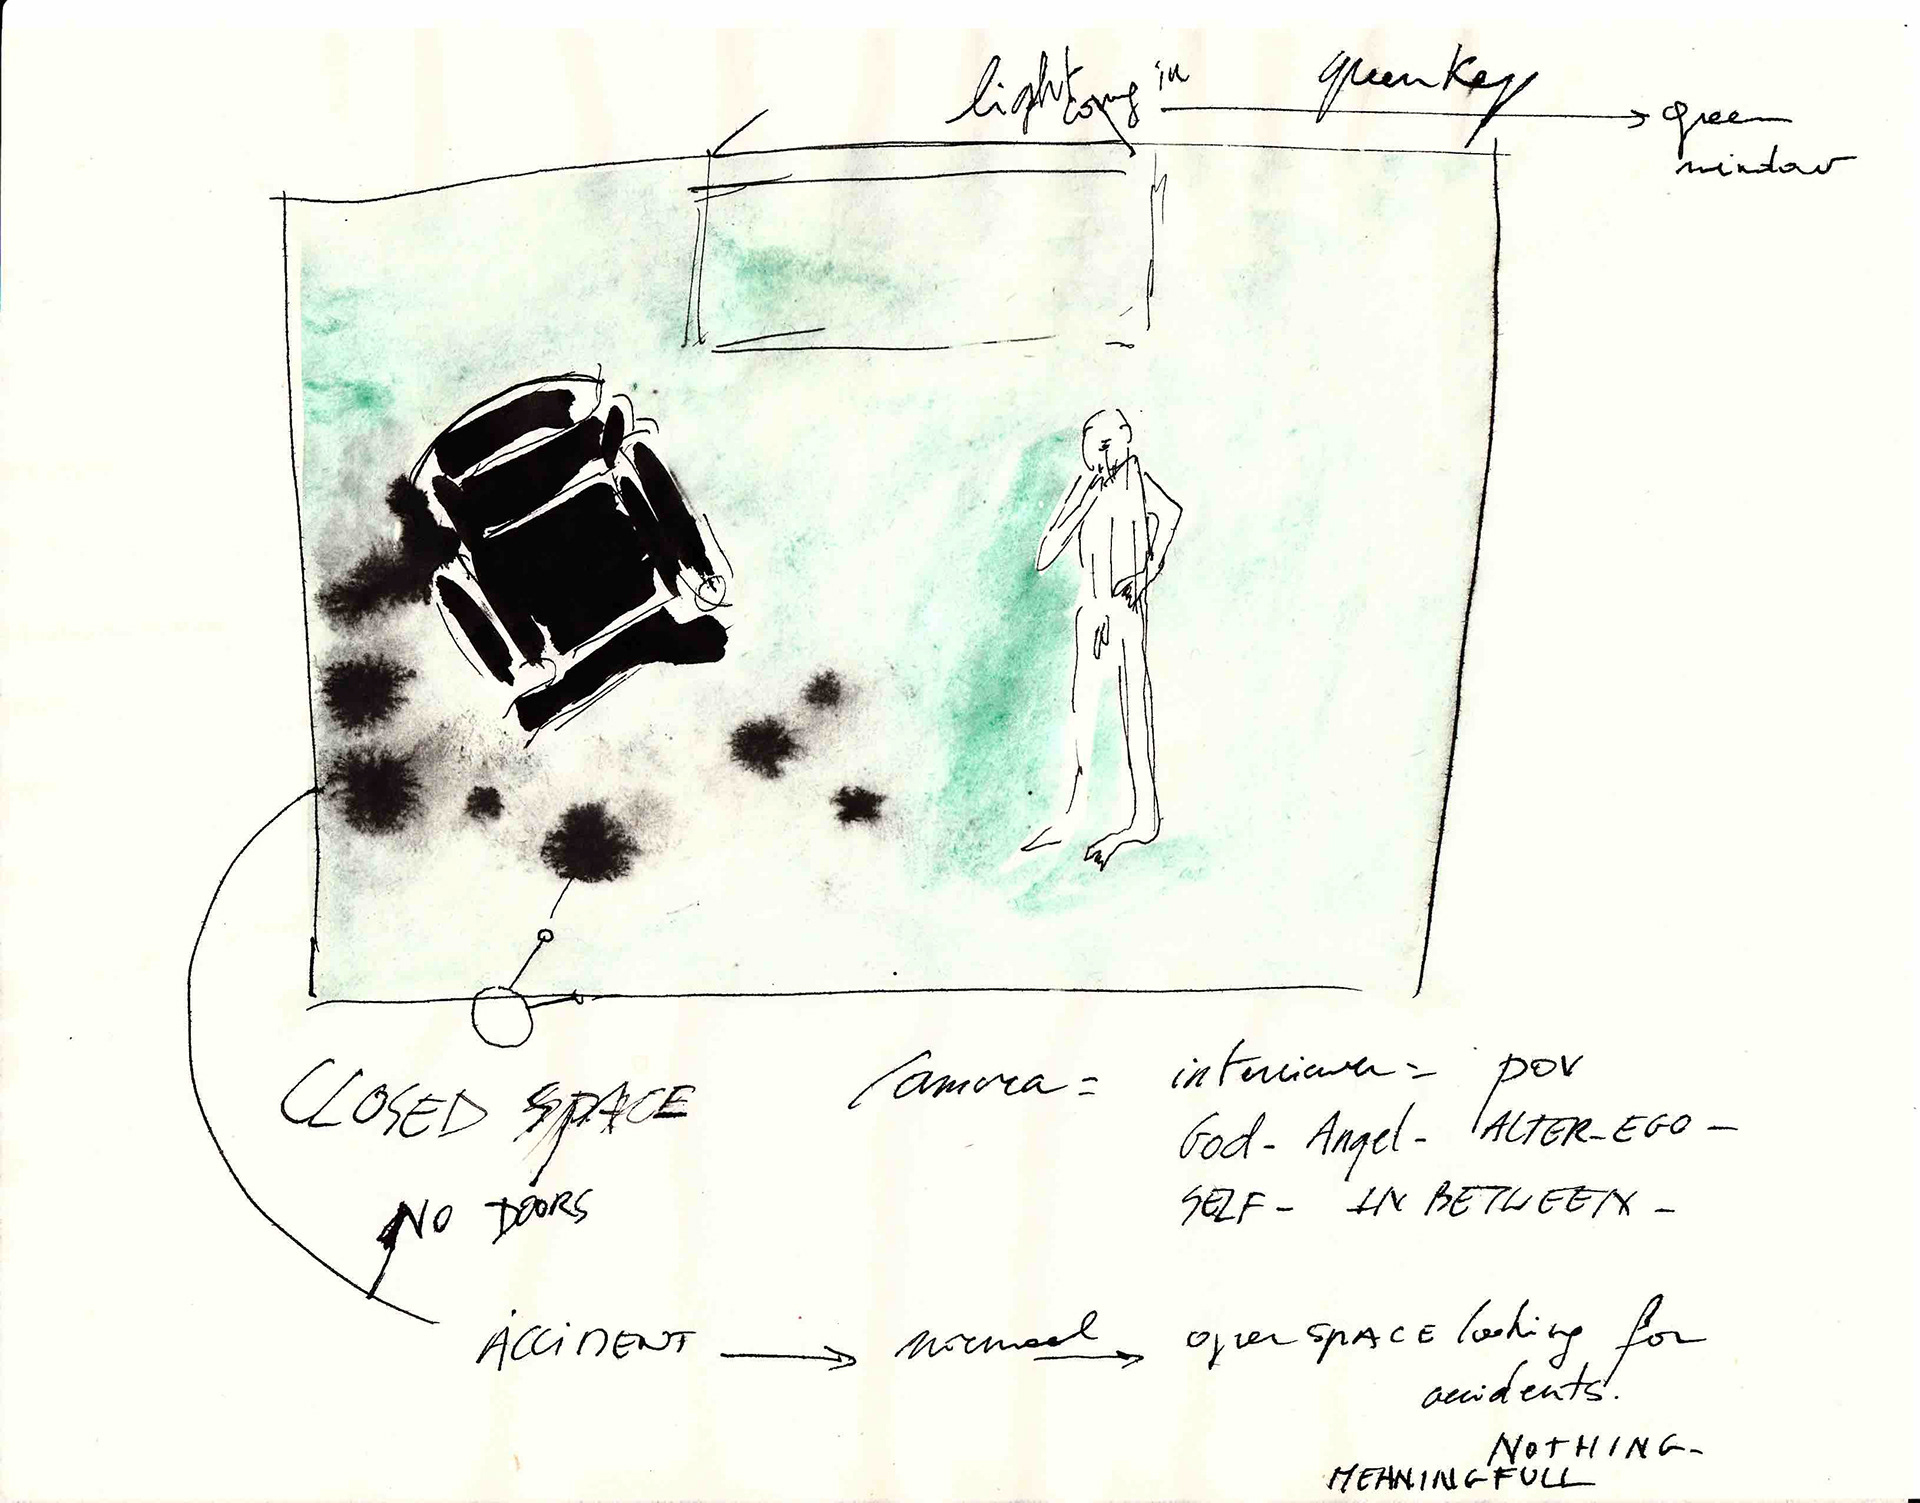 light coming in green key
green
window
CLOSED SPACE
NO DOORS
Camera = interviewer = pov
God - Angel - ALTER-EGO -
SELF - IN BETWEEN -
ACCIDENT normal open SPACE looking for
accidents.
NOTHING -
MEANINGFULL